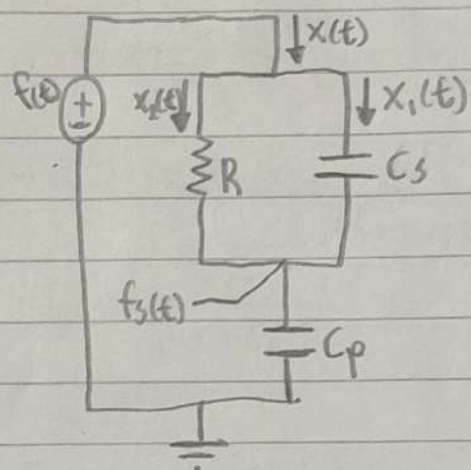 x(t)
f(t)
x₂(t)
x₁(t)
+
-
R
Cs
fs(t)
Cp